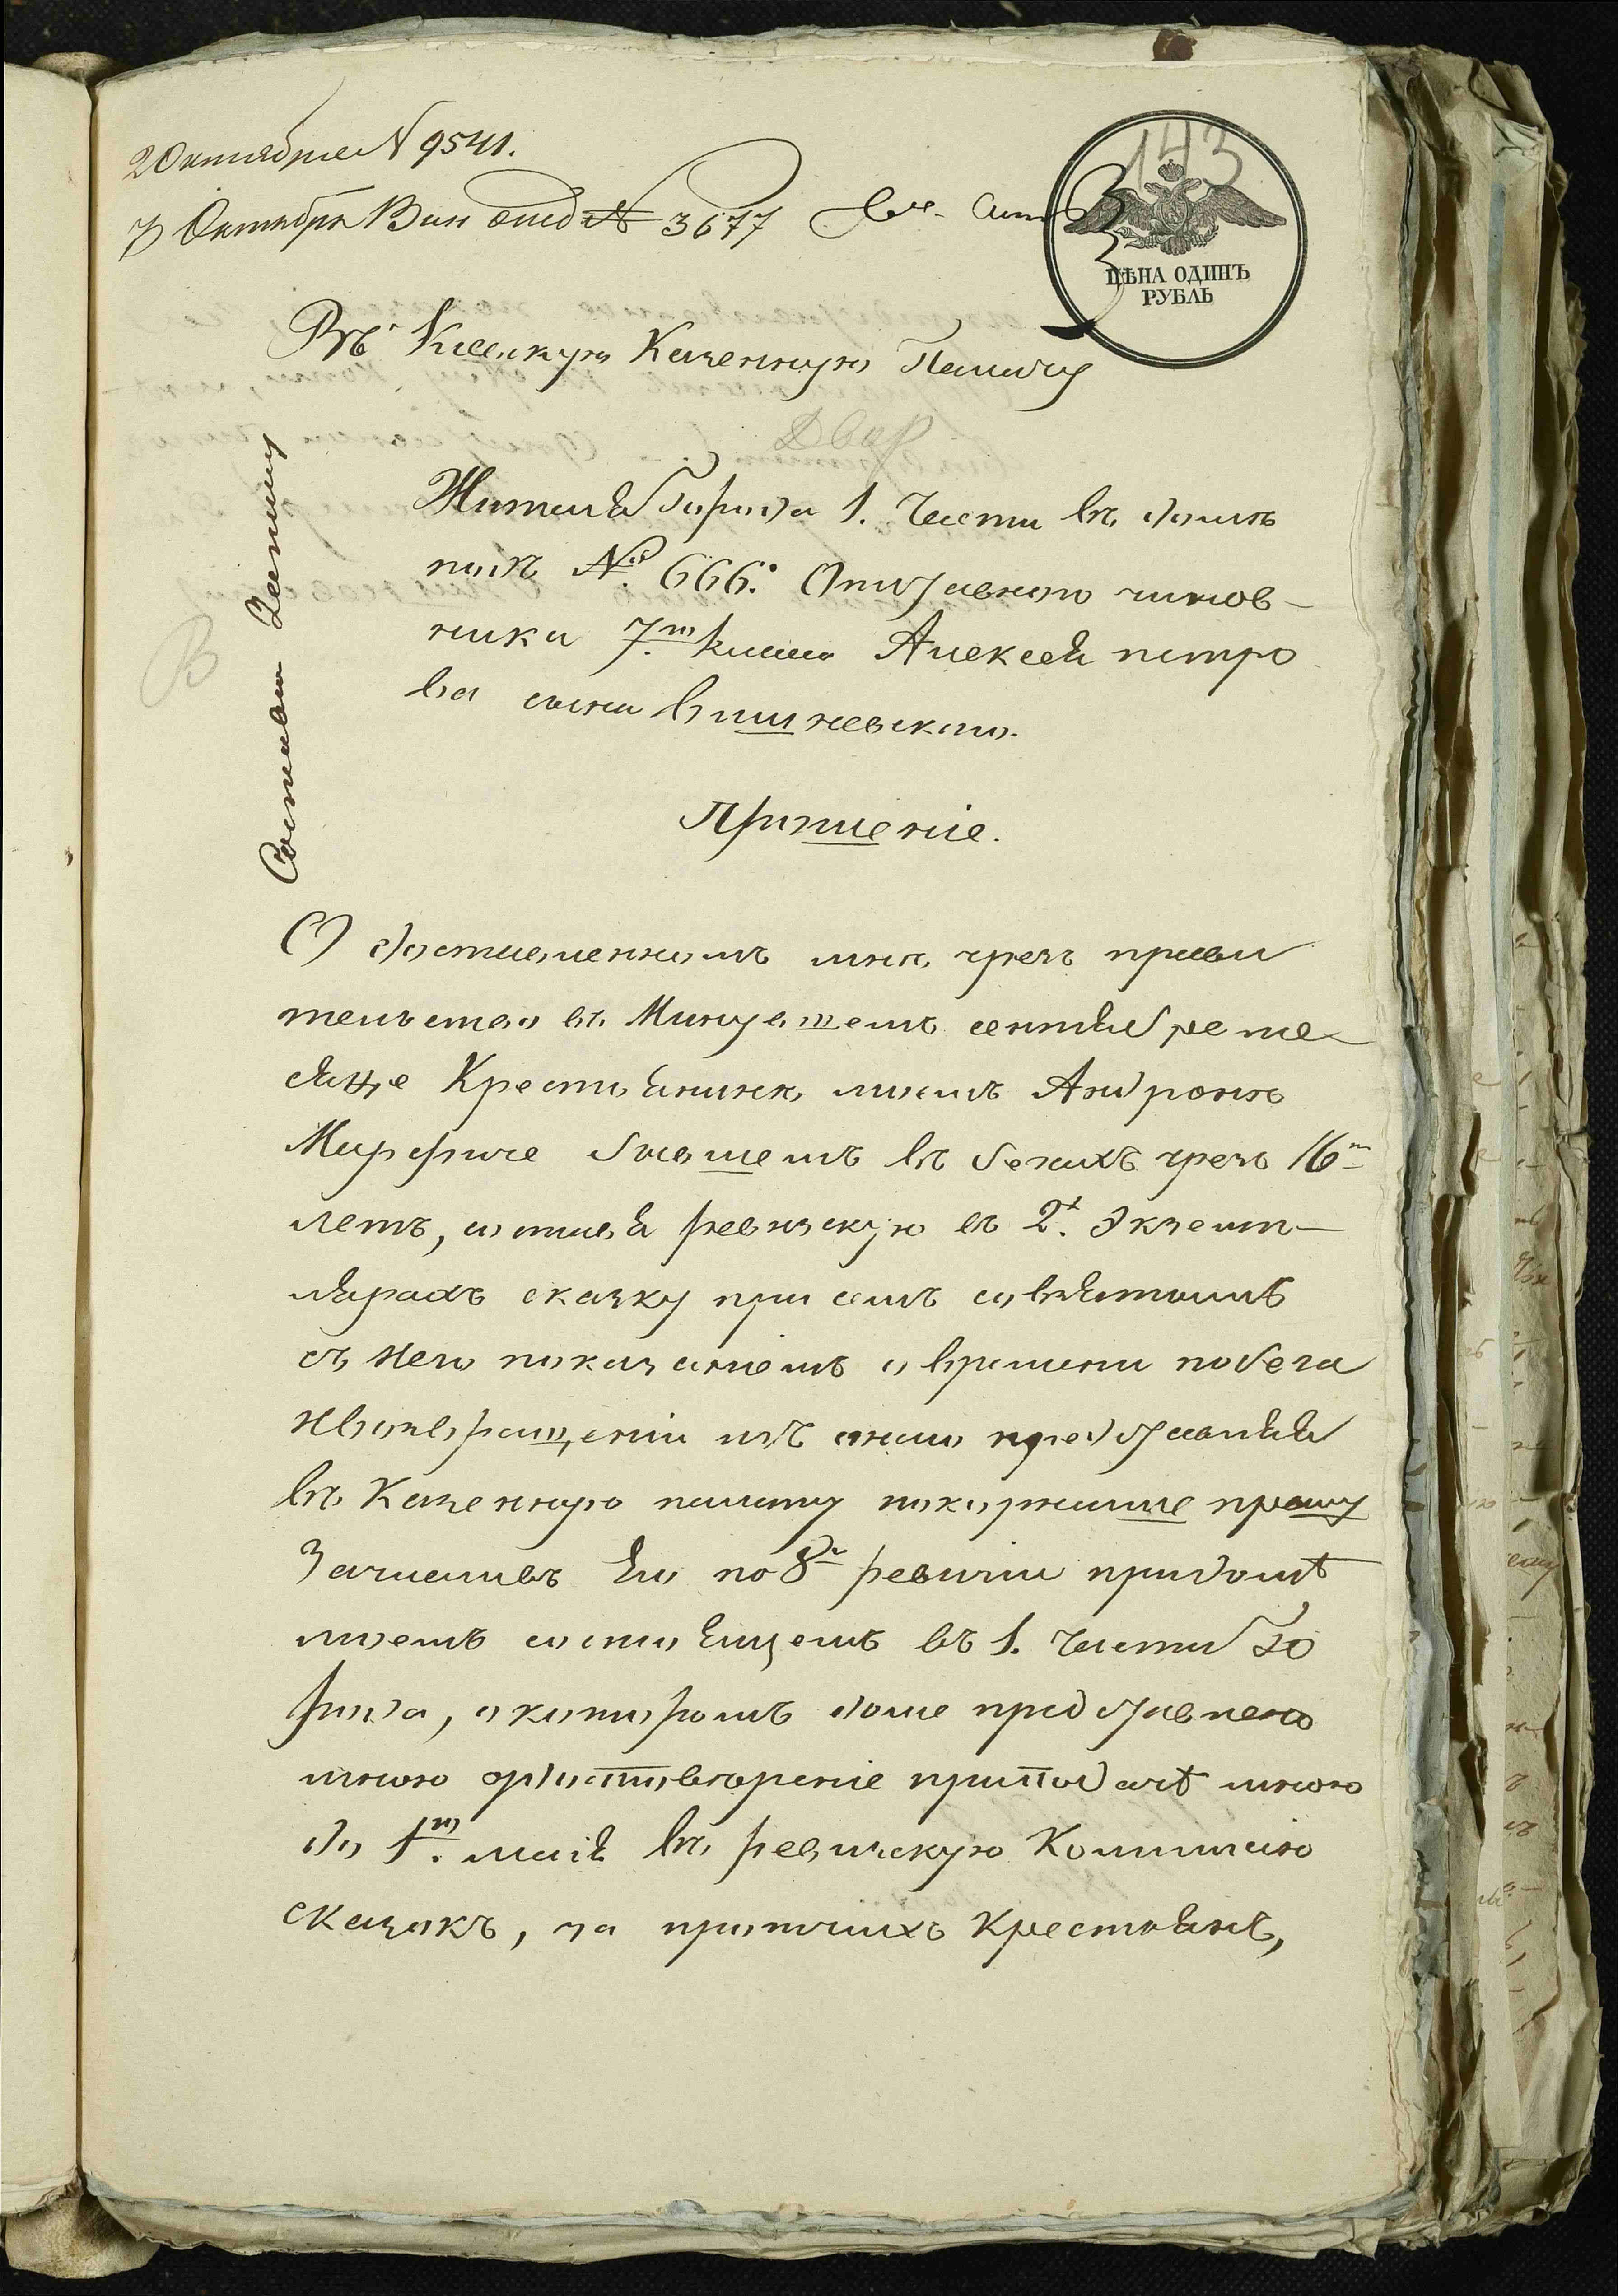 2 Октября N 9541.
7 Октября Вин отд N 3677
143
ЦѢНА ОДИНЪ
РУБЛЬ
Въ Кіевскую Казенную Палату
Двор
Жителя города 1. Части въ домѣ
подъ №. 666. Отставного чинов-
ника 7.го класса Алексея петро
ва сына вишневского.
Прошеніе.
О доставленномъ мнѣ чрезъ прави
тельство въ Минувшемъ сентябре ме-
сяце Крестьянинѣ моемъ Андроне
бывшемъ въ бегахъ чрезъ 16ть
летъ, составя ревизскую въ 2х. Экземп-
лярахъ сказку при семъ съ взятымъ
съ него показаніемъ о времени побега
и возвращеніи изъ оного представляя
въ Казенную палату покорнейше прошу
Зачисливъ Его по 8й ревизіи при доме
моемъ состоящемъ въ 1. части Го
рода, о которомъ доме представлено
мною удостовереніе при подаче мною
до 1го. маія въ ревизскую Коммисію
сказокъ, за протчихъ Крестьянъ,